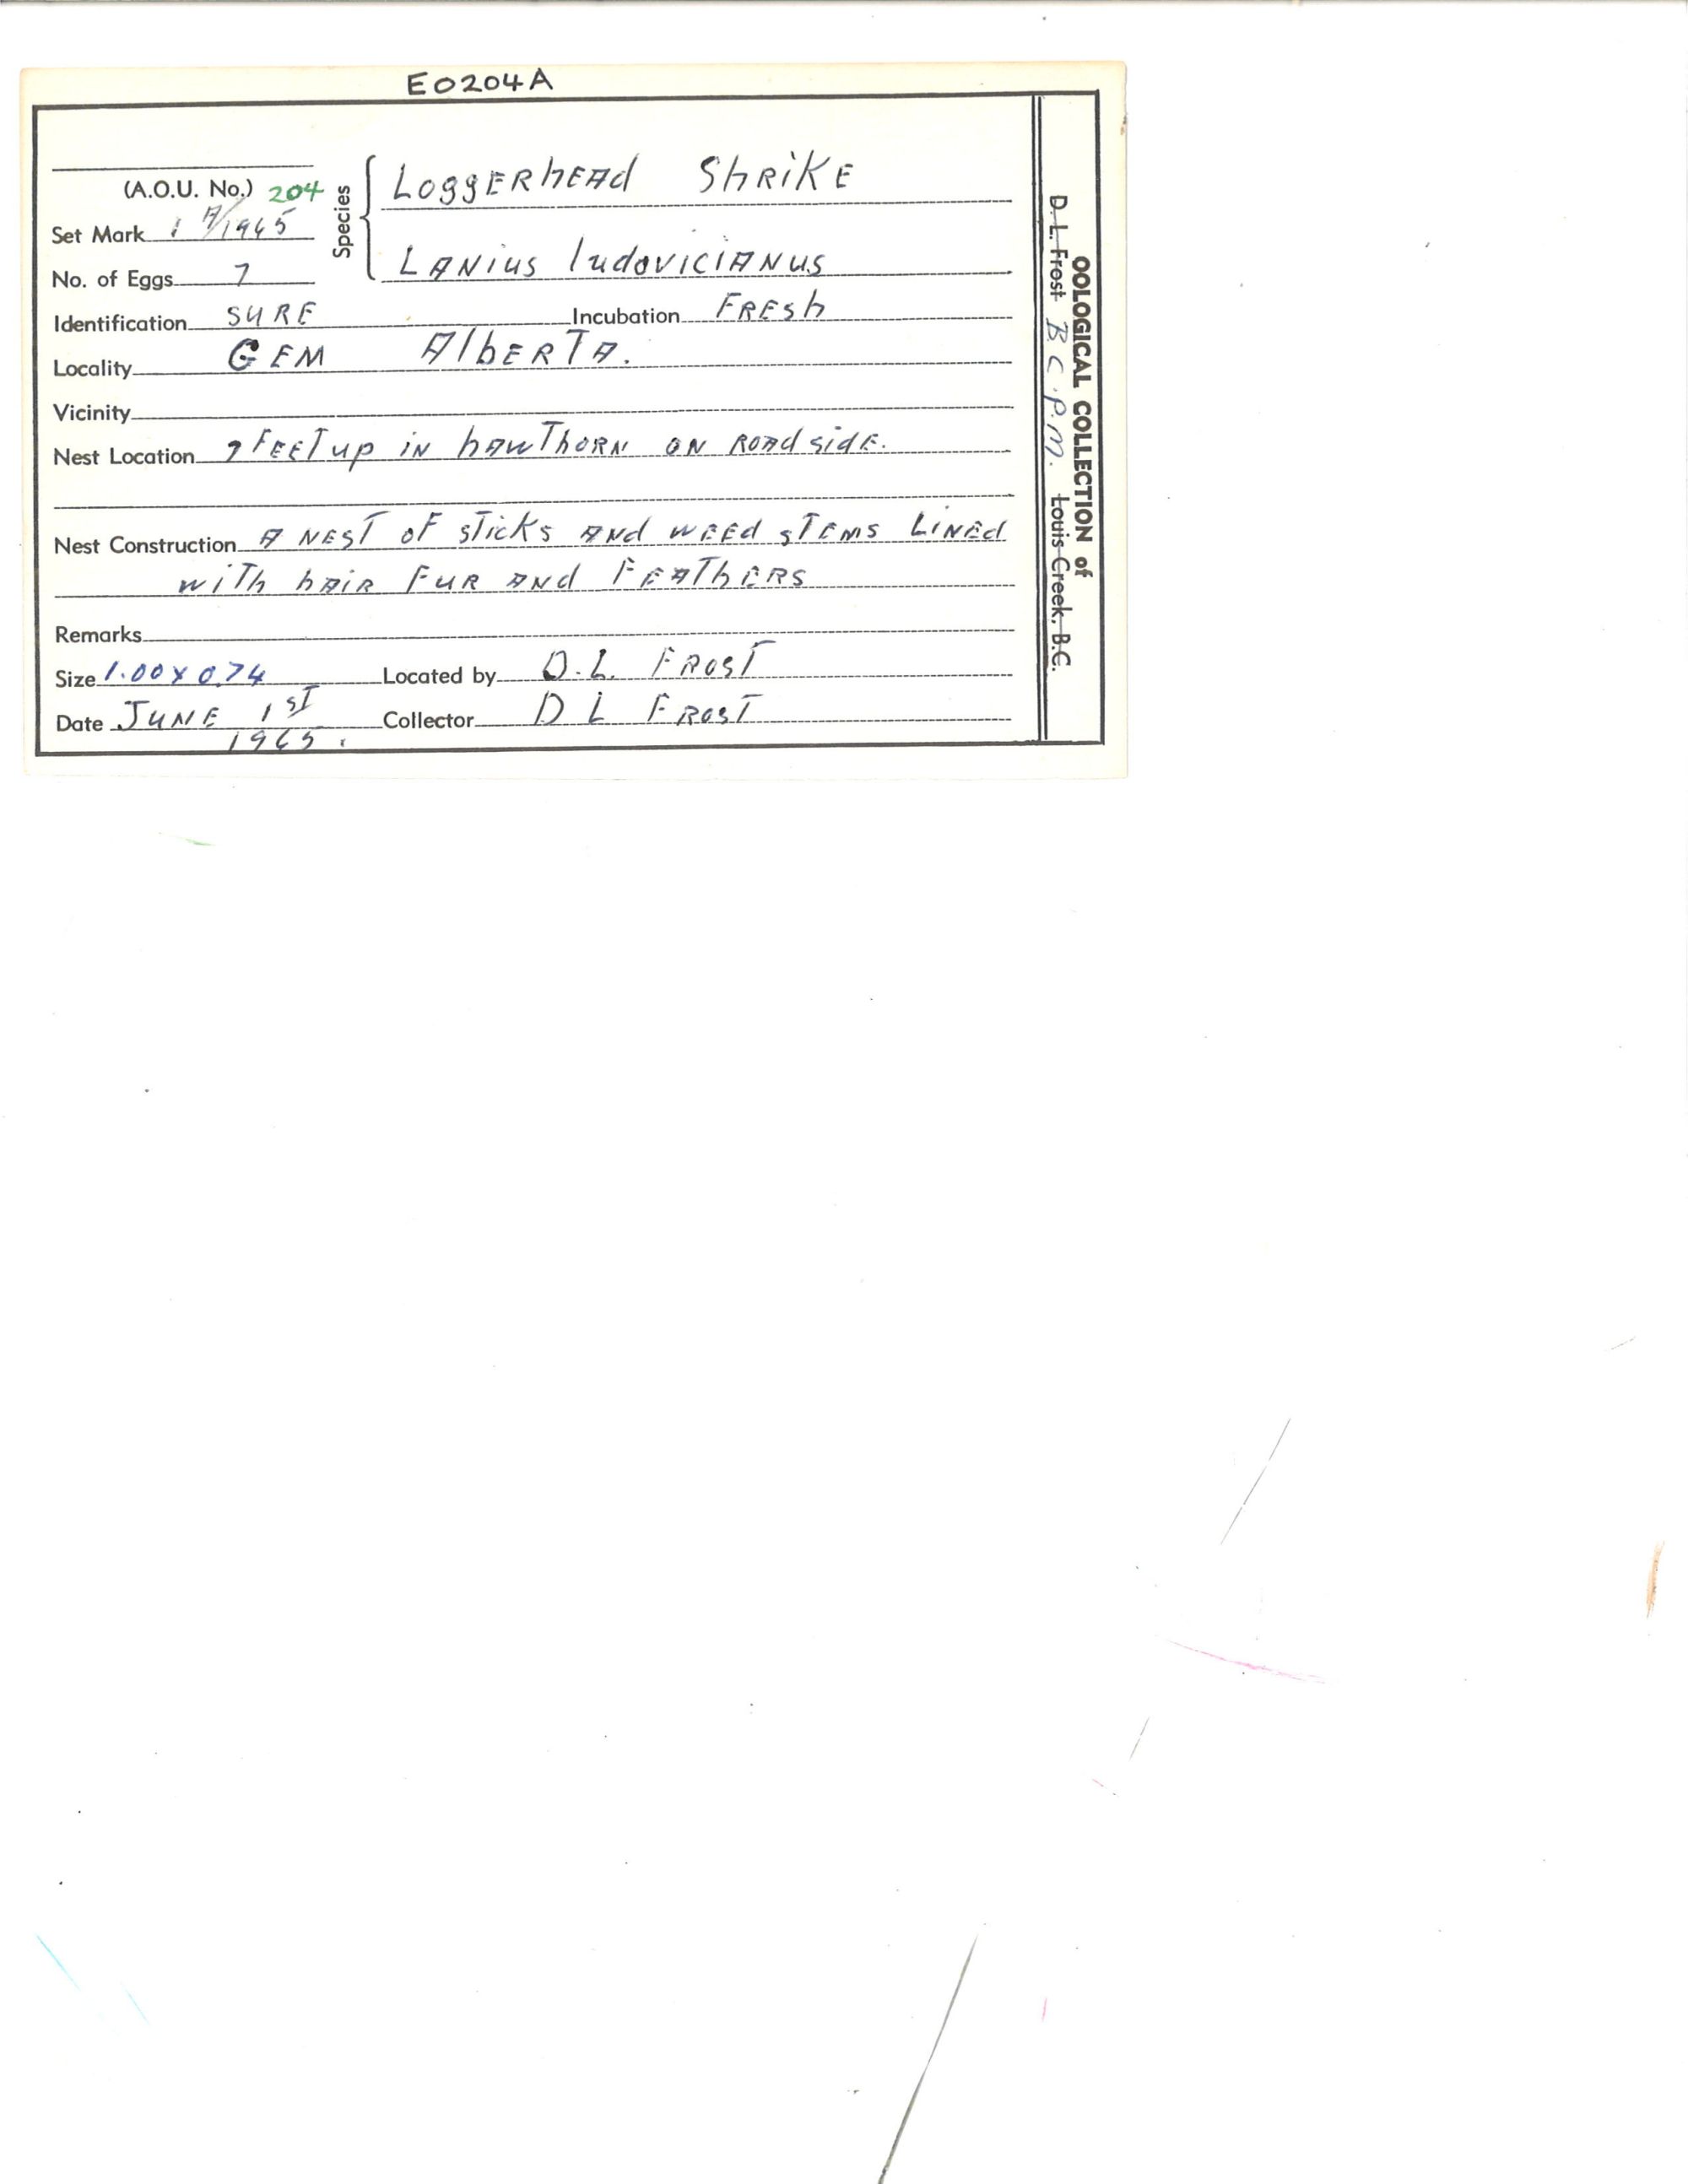 E0204A
(A.O.U. No.) 204
Set Mark 1 A/1965
No. of Eggs 7
Species
Loggerhead Shrike
Lanius ludovicianus
Identification SURE Incubation FRESH
Locality GEM Alberta.
Vicinity
Nest Location 7 FEET up in hawthorn on roadside.
Nest Construction A nest of sticks and weed stems lined
with hair fur and feathers
Remarks
Size 1.00 x 0.74 Located by D.L. FROST
Date JUNE 1ST Collector D L FROST
1965.
OOLOGICAL COLLECTION of
D. L. Frost B.C.P.M. Louis Creek, B.C.